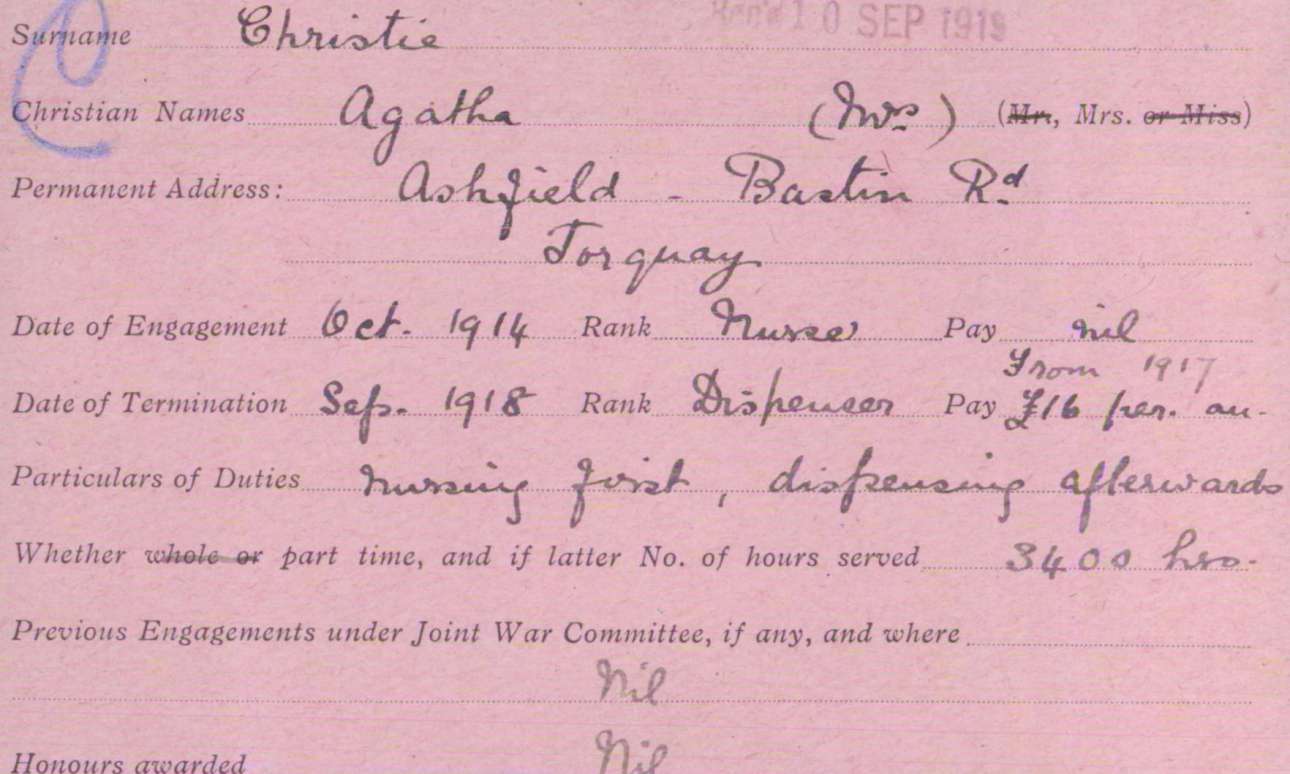 Surname Christie Rec'd 10 SEP 1919
Christian Names Agatha (Mrs) (Mr, Mrs. or Miss)
Permanent Address: Ashfield - Bastin Rd
Torquay
Date of Engagement Oct. 1914 Rank Nurse Pay nil
From 1917
Date of Termination Sep. 1918 Rank Dispenser Pay £16 per. an-
Particulars of Duties nursing first, dispensing afterwards
Whether whole or part time, and if latter No. of hours served 3400 hrs.
Previous Engagements under Joint War Committee, if any, and where
Nil
Honours awarded Nil